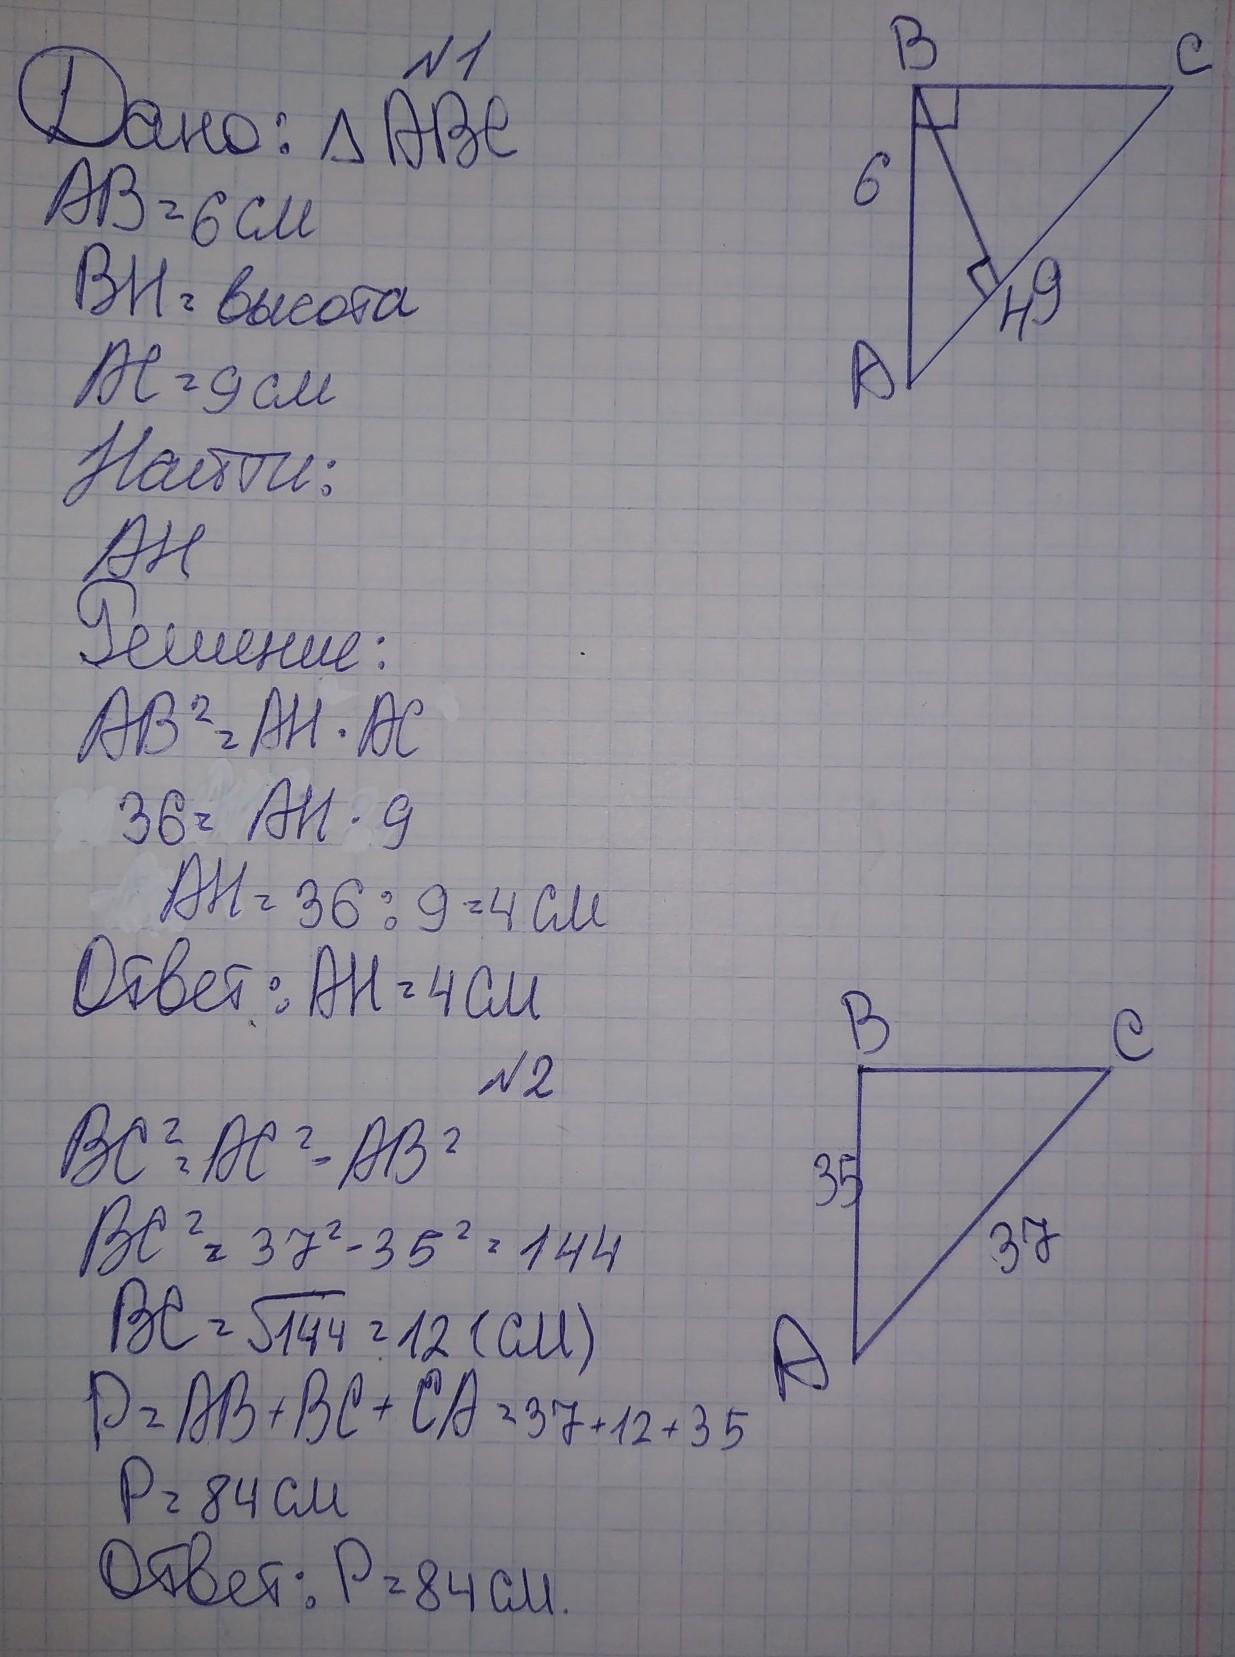 N1
Дано: △ABC
AB=6см
BH=высота
AC=9см
Найти:
AH
Решение:
AB²=AH·AC
36=AH·9
AH=36:9=4см
Ответ: AH=4см
B
C
6
H
9
A
N2
BC²=AC²-AB²
BC²=37²-35²=144
BC=√144=12(см)
P=AB+BC+CA=37+12+35
P=84см
Ответ: P=84см.
B
C
35
37
A